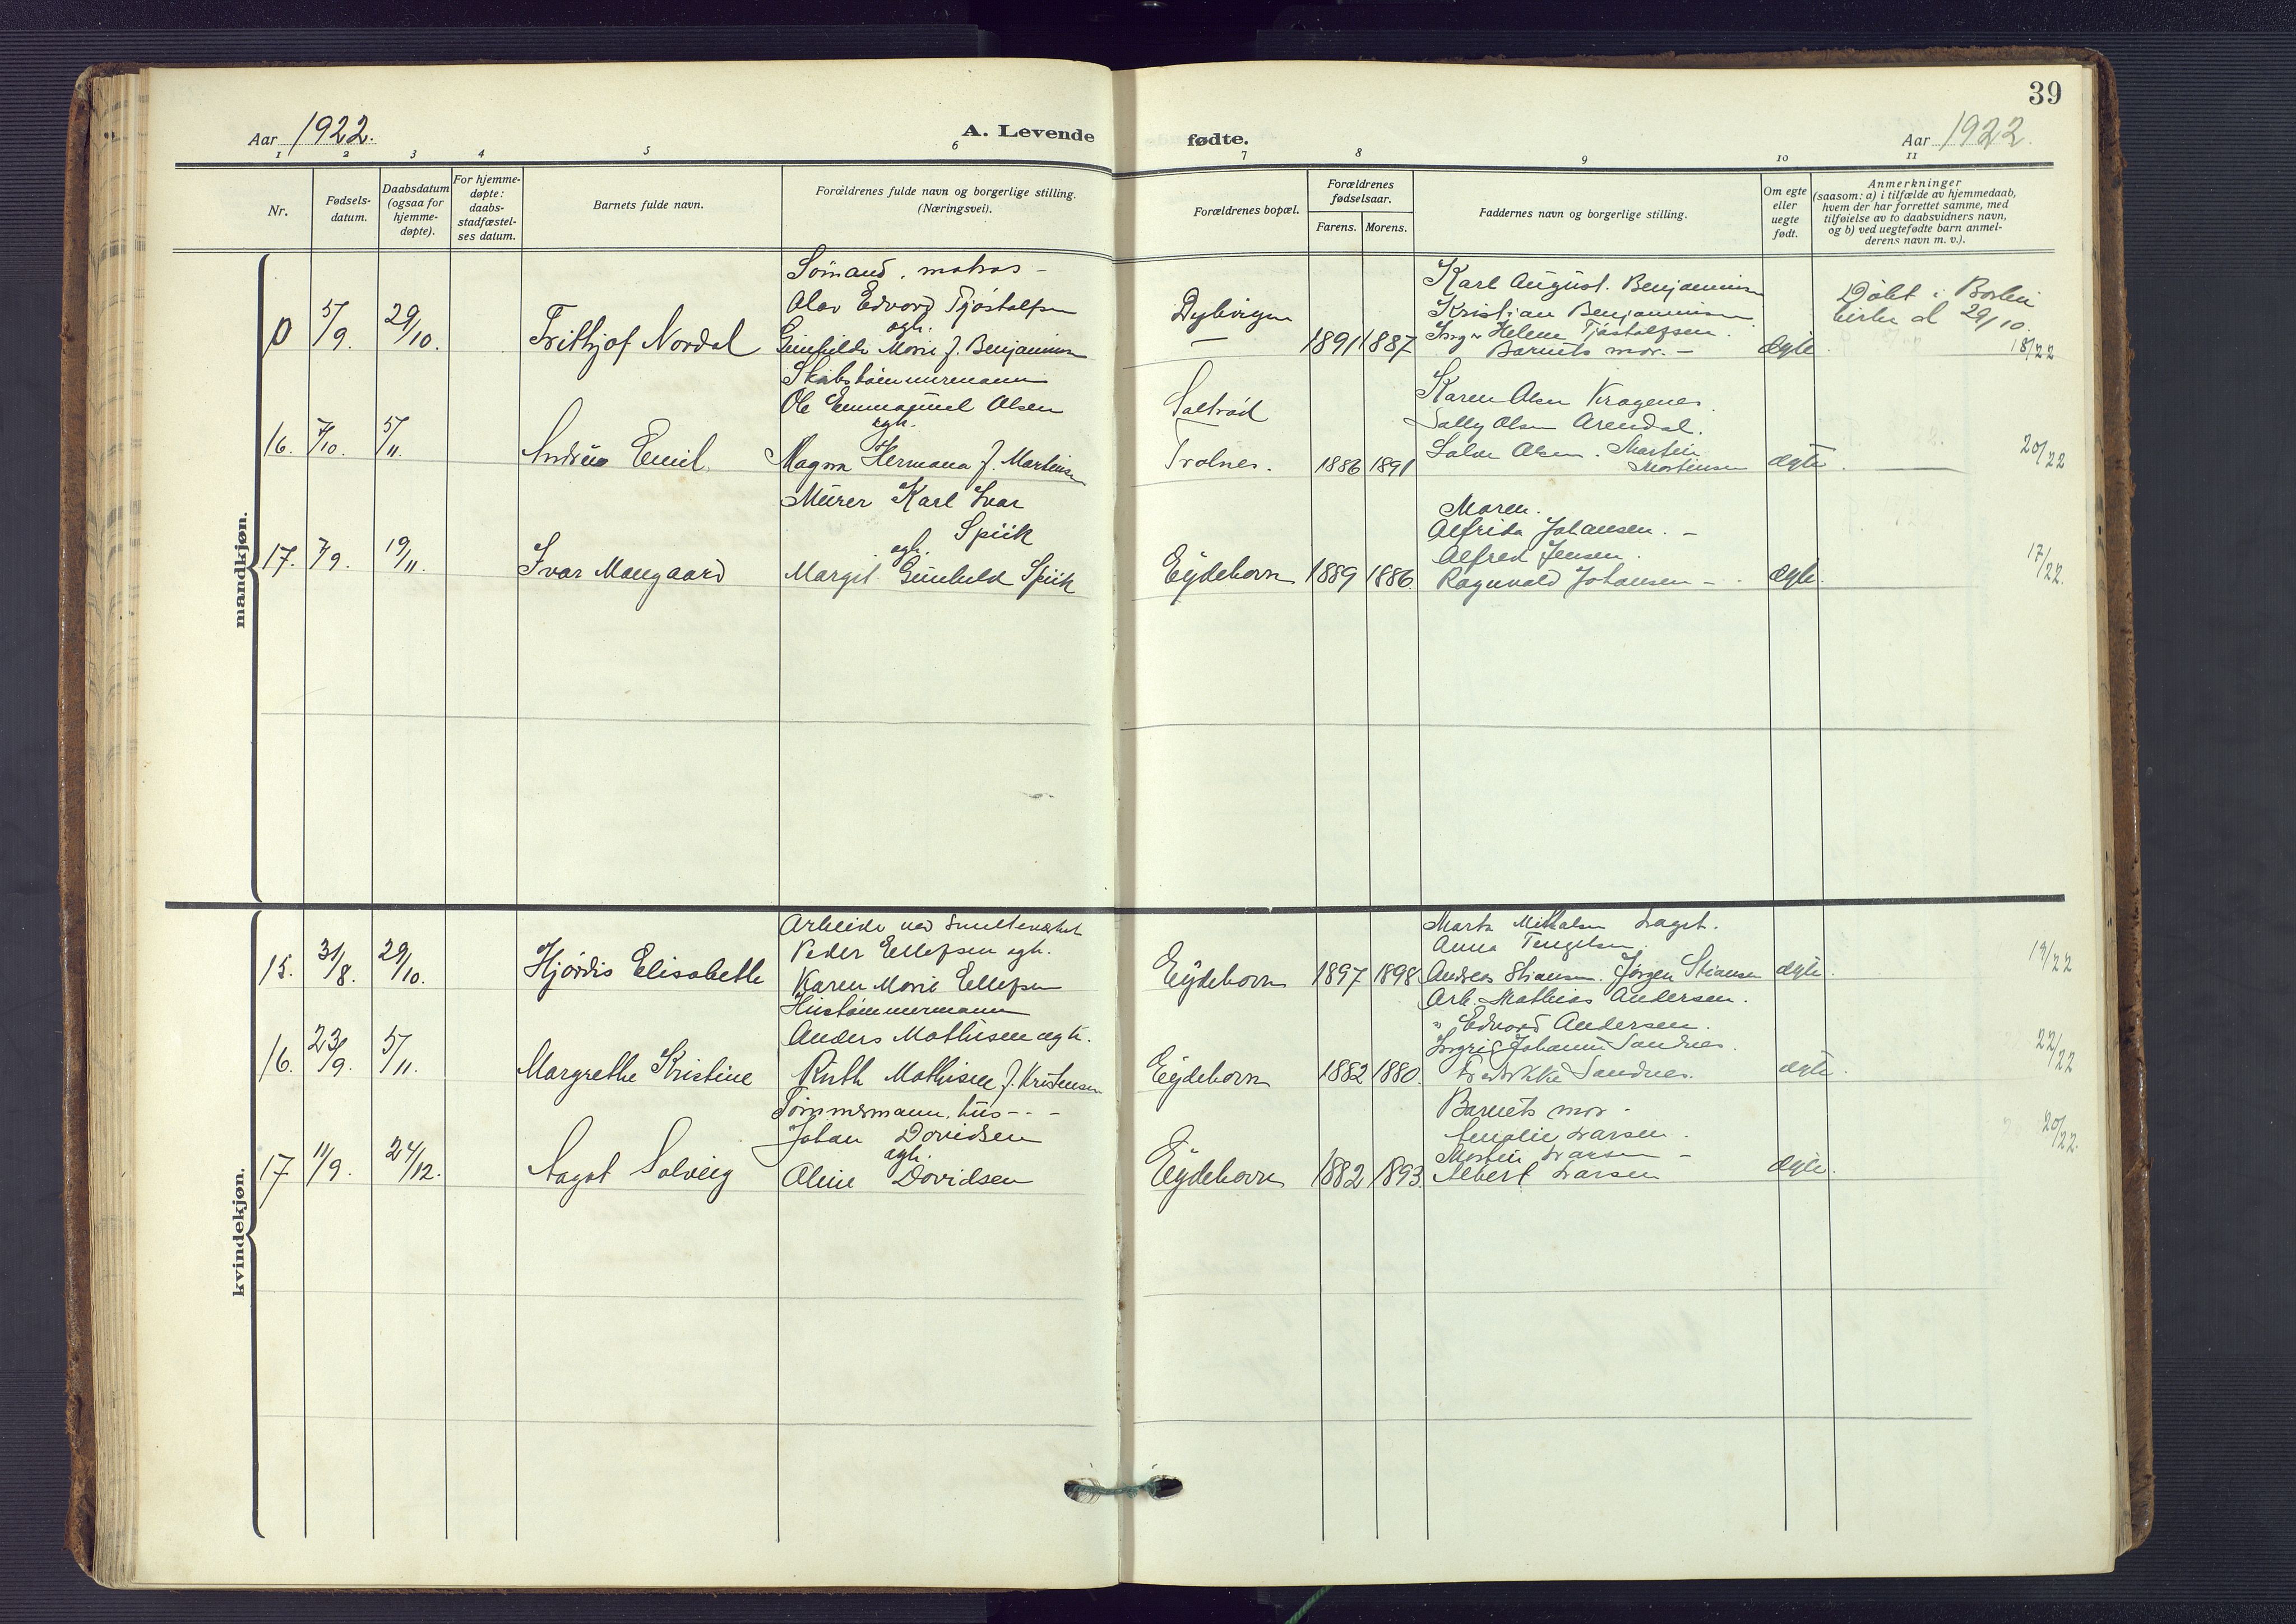 39
Aar 1922.
A. Levende
fødte.
Aar 1922.
1 2 3 4 5 6 7 8 9 10 11
Nr.
Fødsels-
datum.
Daabsdatum
(ogsaa for
hjemme-
døpte).
For hjemme-
døpte:
daabs-
stadfæstel-
ses datum.
Barnets fulde navn.
Forældrenes fulde navn og borgerlige stilling.
(Næringsvei).
Forældrenes bopæl.
Forældrenes
fødselsaar.
Farens. Morens.
Faddernes navn og borgerlige stilling.
Om egte
eller
uegte
født.
Anmerkninger
(saasom: a) i tilfælde av hjemmedaab,
hvem der har forrettet samme, med
tilføielse av to daabsvidners navn,
og b) ved uegtefødte barn anmel-
derens navn m. v.).
mandkjøn.
0 5/9. 29/10. Frithjof Nordal
Sømand, matros -
Olav Edvard Tjøstolfsen
egh.
Gunhilde Marie f. Benjaminsen
Dybvigen
1891 1887
Karl August. Benjaminsen
Kristian Benjaminsen
Inger Helene Tjøstolfsen.
Barnets mor. -
ægte.
Døbt i Barbu
kirke d 29/10.
18/22
16. 7/10. 5/11 Andreas Emil.
Skibstømmermann
Ole Emmanuel Olsen
egh.
Magna Hermana f. Martinsen
Saltrød
Tralnes.
1886 1891
Karen Olsen Kragenes.
Sally Olsen Arendal.
Salve Olsen. Martin
Mortensen
ægte.
20/22
17. 7/9. 19/11. Ivar Maugaard
Murer Karl Ivar
Spiik
egh.
Margit Gunhild Spiik
Eydehavn 1889 1886.
Moren.
Alfrida Johansen. -
Alfred Jensen.
Ragnvald Johansen - .
ægte.
17/22.
kvindekjøn.
15. 31/8. 29/10. Hjørdis Elisabeth
Arbeide ved Smelteverket
Peder Ellefsen egh.
Karen Marie Ellefsen
Eydehavn 1897 1898
Marta Mikkalsen
Anna Tengelsen.
Andreas Stiansen. Jørgen Stiansen
ægte.
19/22
16. 23/9. 5/11. Margrethe Kristine
Hustømmermann
Anders Mathisen egh.
Ruth Mathisen f. Kristensen
Eydehavn 1882 1880.
Arb. Mathias Andersen.
" Edvard Andersen.
Ingrid Johanne Sandnes.
Fredrikke Sandnes.
ægte.
22/22
17 11/9. 24/12. Aagot Solveig
Tømmermann, hus - - -
Johan Davidsen
egh.
Aline Davidsen
Eydehavn 1882 1893.
Barnets mor -
Amalie Larsen.
Martin Larsen -
Albert Larsen
ægte.
20/22.